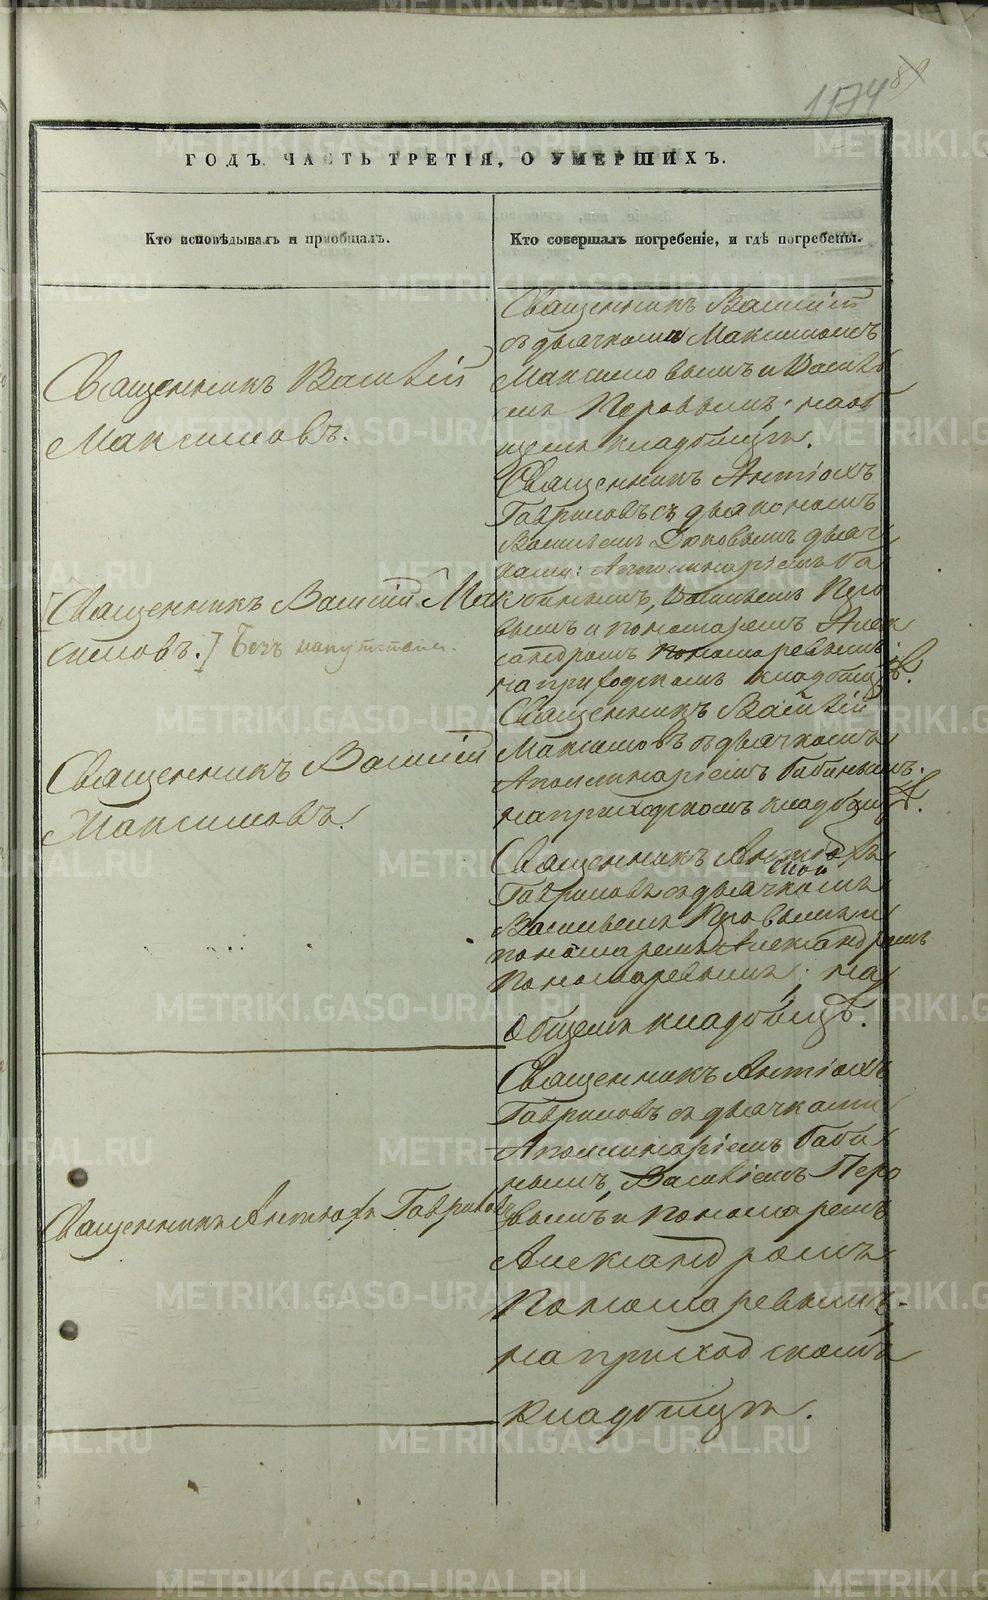 1174
ГОДЪ. ЧАСТЬ ТРЕТІЯ, О УМЕРШИХЪ.
Кто исповѣдывалъ и пріобщалъ.
Кто совершалъ погребеніе, и гдѣ погребены.
Священникъ Василій
Максимовъ.
Священникъ Василій
съ дьячкомъ Максимомъ
Максимовымъ и Василь
емъ Перовымъ; на об
щемъ кладбищѣ.
[Священникъ Василій Мак
симовъ.] Безъ напутствія.
Священникъ Антіохъ
Гавриловъ съ дьякономъ
Васильемъ Дюковымъ дьяч
ками: Апполинаріемъ Ба
бинымъ, Васильемъ Перо
вымъ и пономаремъ Алек
сандромъ Пономаревымъ
на приходскомъ кладбищѣ.
Священникъ Василій
Максимовъ.
Священникъ Василій
Максимовъ съ дьячкомъ
Аполинаріемъ Бабинымъ.
на приходскомъ кладбищѣ.
Священникъ Антіохъ
Гавриловъ съ дьячкомъ
Васильемъ Перовымъ и
пономаремъ Александромъ
Пономаревымъ; на
общемъ кладбищѣ.
Священникъ Антіохъ Гавриловъ
Священникъ Антіохъ
Гавриловъ съ дьячками
Аполинаріемъ Баби
нымъ, Василіемъ Перо
вымъ и пономаремъ
Александромъ
Пономаревымъ.
на приходскомъ
кладбищѣ.
METRIKI.GASO-URAL.RU